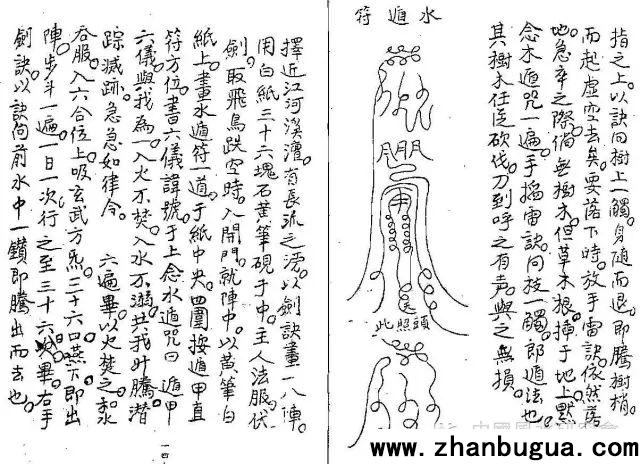 指之上。以訣向樹上一觸。身随而退。即騰樹梢。
而起虚空去矣。要落下時。放手雷訣。依然落
地。急卒之際。倘無樹木。但草木根。揷于地上。默
念木遁咒一遍。手搯雷訣。向技一觸。郎遁法也。
其樹木任從砍伐。刀到呼之有声。與之無損。
水遁符
頭照此
擇近江河溪漕。有長派之滂。以劍訣畫一八陣。
用白紙三十六塊。石黃筆硯于中。主人法服。伏
劍。取飛鳥跌空時。入開門。就陣中。以黃筆白
紙上畫水遁符一道。于紙中央。四圍按遁甲直
符方位。書六儀諱號。于上念水遁咒曰 遁甲
六儀與我為一。入火不焚。入水不溺。共我叶騰。潛
踪滅跡。急急如律令。 六遍畢。以火焚之。和水
吞服。入六合位上。吸玄武方炁。三十六口燕下。即出
陣。步斗一遍。一日一次行之。至三十六日畢。右手
劍訣。以訣向前水中一鑽。即騰出而去也。
www.zhanbugua.com